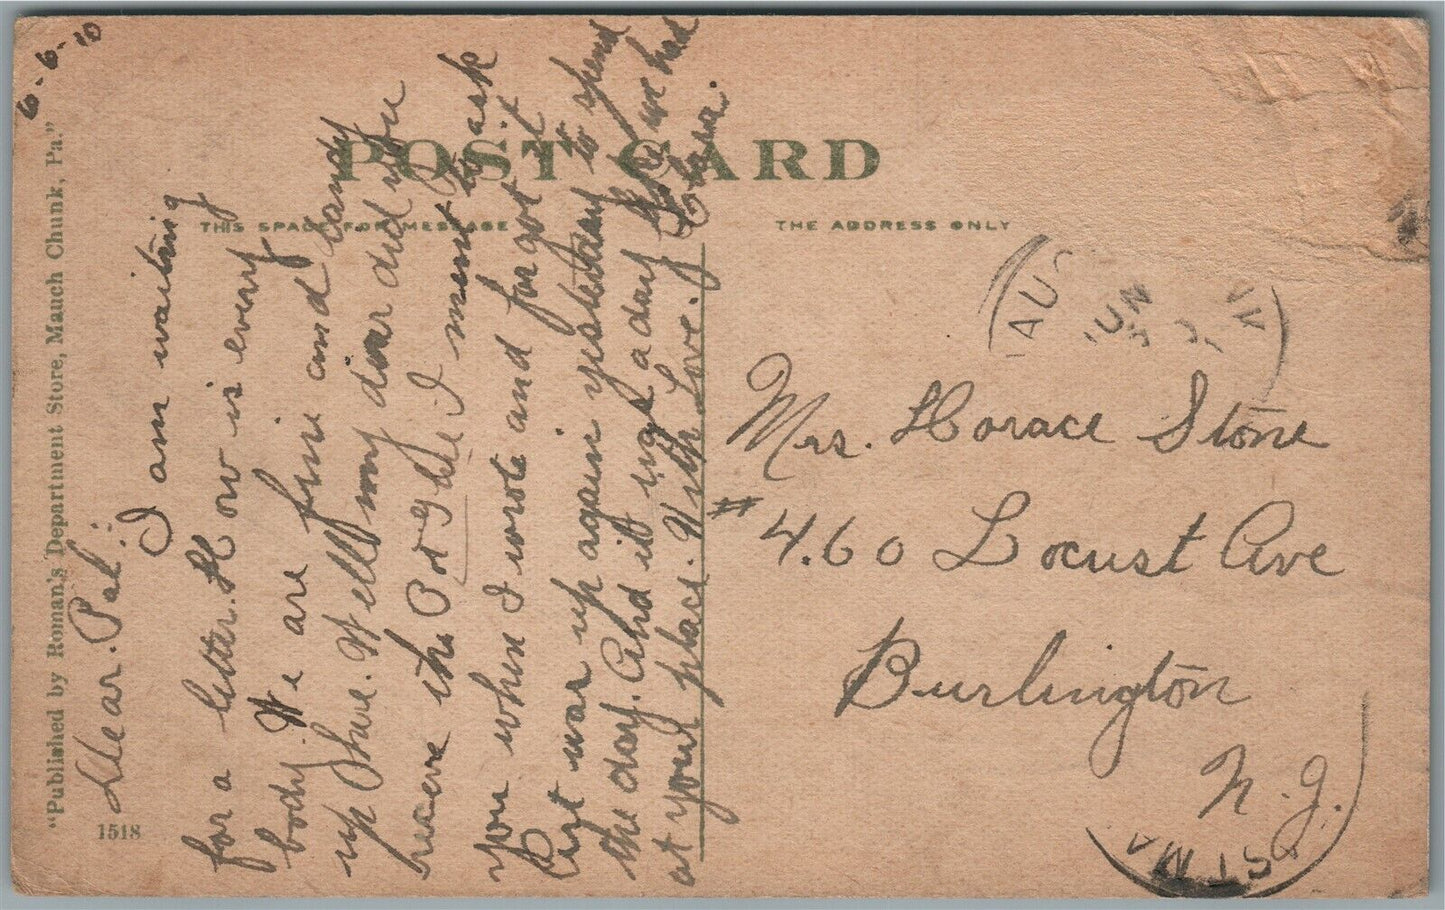 6-6-10
"Published by Roman's Department Store, Mauch Chunk, Pa."
1518
POST CARD
THIS SPACE FOR MESSAGE
THE ADDRESS ONLY
Dear. Pal.:
I am waiting
for a letter. How is every
body. We are fine and dandy
up here. Well my dear did you
receive the I ment to ask
you when I wrote and forgot it
was up again yesterday to spend
the day. And it was a day like we had
at your place. With Love. Clara.
Mrs. Horace Stone
# 460 Locust Ave
Burlington
N. J.
AUS
JUN